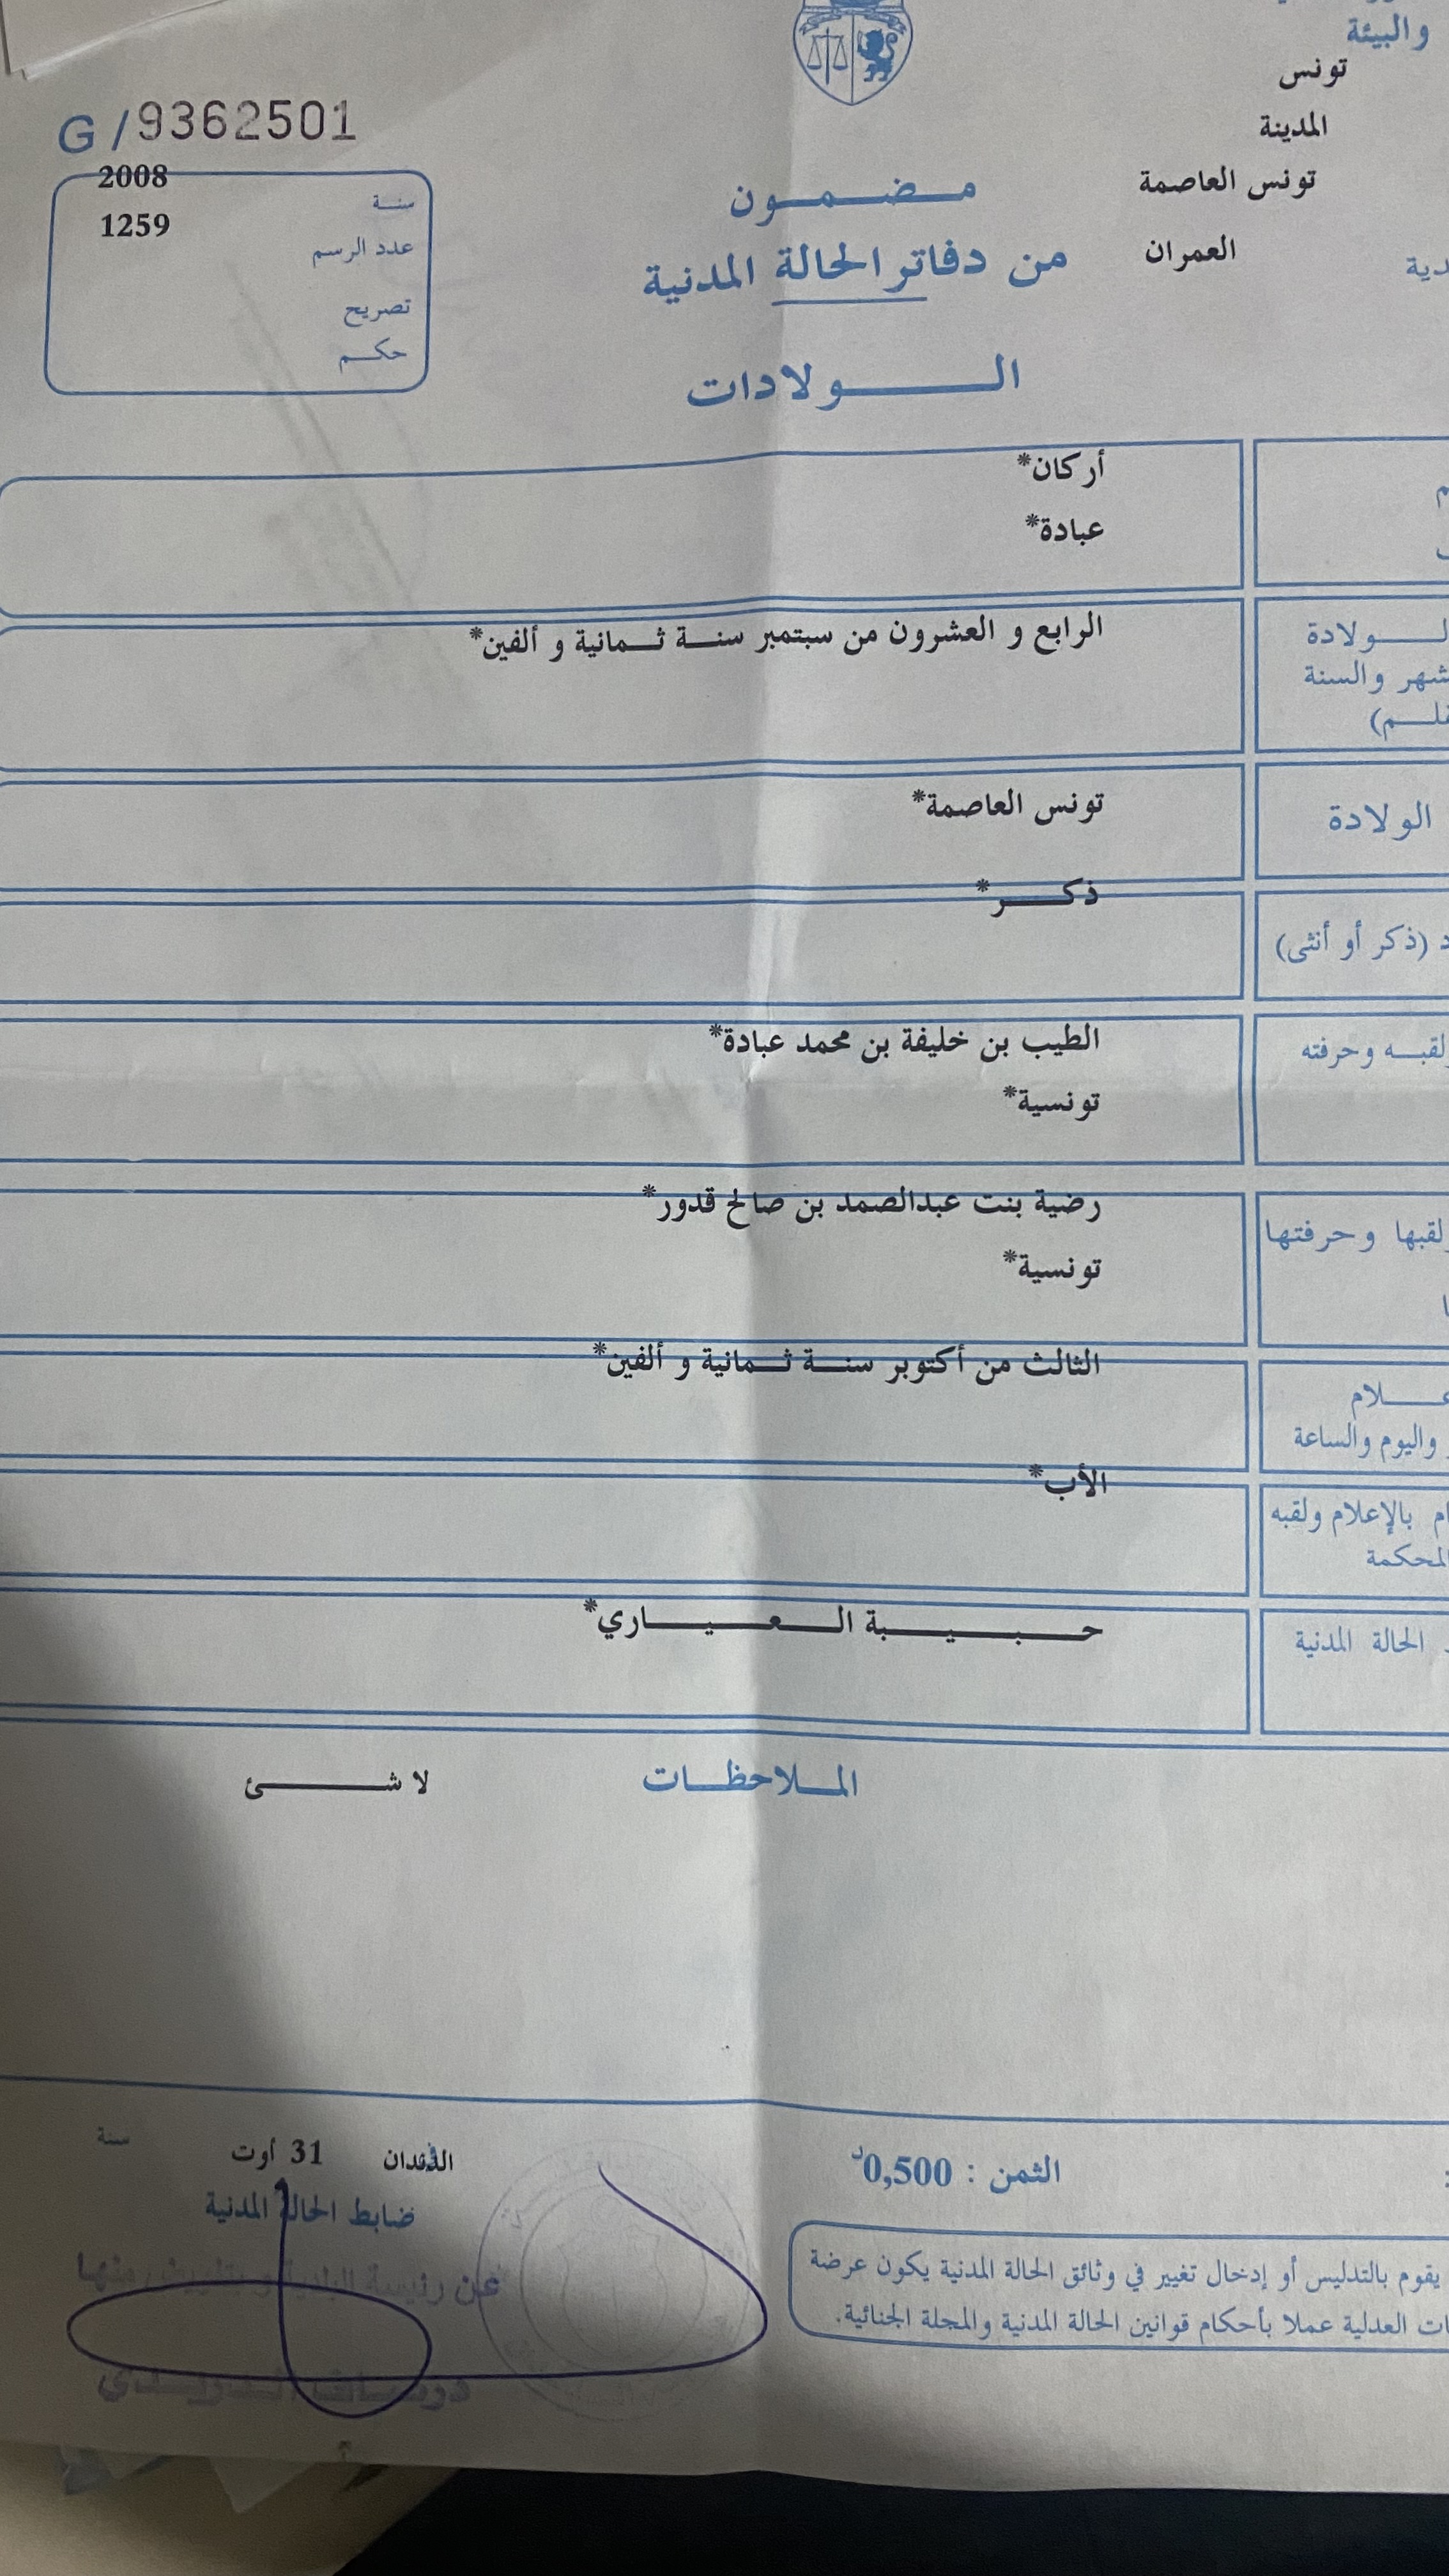 والبيئة
تونس
المدينة
تونس العاصمة
العمران
G/9362501
2008
سنة
1259
عدد الرسم
تصريح
حكم
مضمون
من دفاتر الحالة المدنية
الولادات
أركان*
عبادة*
الولادة
الرابع و العشرون من سبتمبر سنة ثمانية و ألفين*
والسنة
الولادة
تونس العاصمة*
ذكر*
(ذكر أو أنثى)
الطيب بن خليفة بن محمد عبادة*
وحرفته
تونسية*
رضية بنت عبدالصمد بن صالح قدور*
وحرفتها
تونسية*
الثالث من أكتوبر سنة ثمانية و ألفين*
واليوم والساعة
الأب*
بالإعلام ولقبه
المحكمة
حبيبة العياري*
الحالة المدنية
الملاحظات
لا شئ
الثمن : 0,500د
31 أوت
سنة
ضابط الحالة المدنية
يقوم بالتدليس أو إدخال تغيير في وثائق الحالة المدنية يكون عرضة
العدلية عملا بأحكام قوانين الحالة المدنية والمجلة الجنائية.